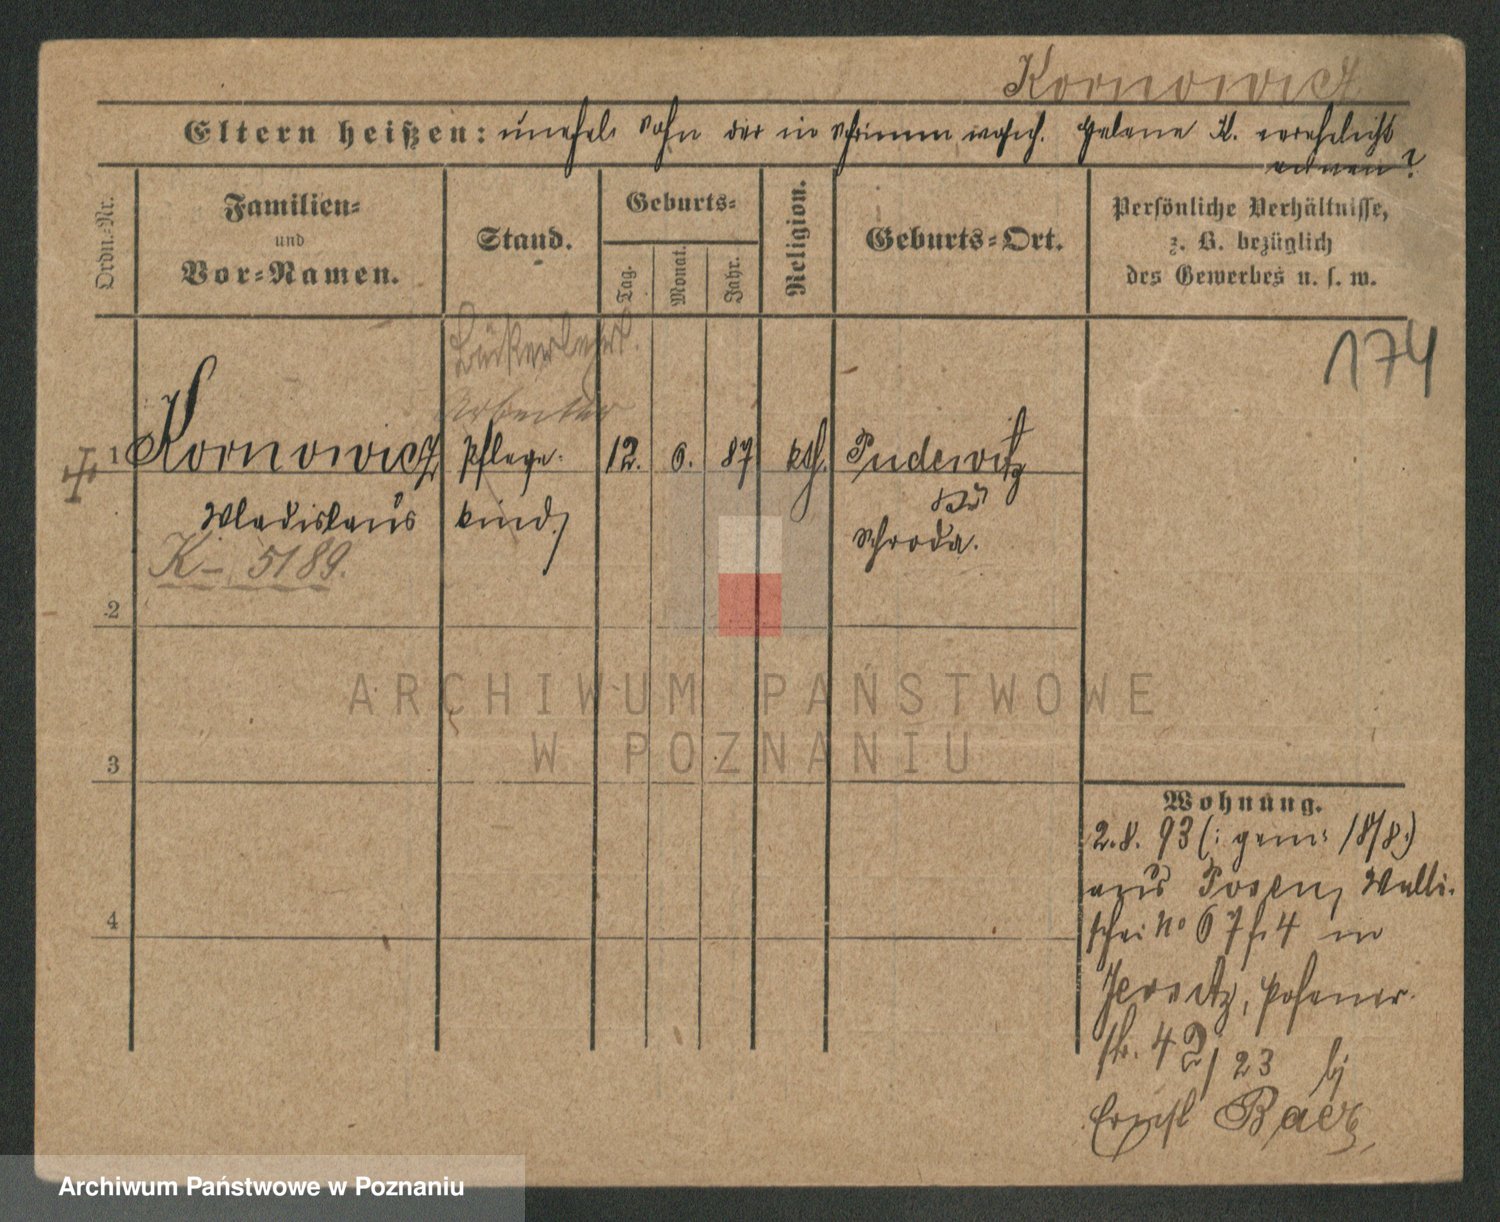 Kornowicz
Eltern heißen: unehel. Sohn der in Schrimm wohnh. Helene K. verehelicht
?
Ordn.-Nr.
Familien-
und
Vor-Namen.
Stand.
Geburts-
Tag.
Monat.
Jahr.
Religion.
Geburts-Ort.
Persönliche Verhältnisse,
z. B. bezüglich
des Gewerbes u. s. w.
174
Bäckerlehrl.
Arbeiter
1 Kornowicz Pflege- 12. 6. 87 kth. Pudewitz
Wladislaus kind
Schroda.
K – 5189.
2
3
4
Wohnung.
2.8. 93 (: gem: 18/8:)
aus Posen, Walli-
schei No 67 f. 4 in
Jersitz, Posener-
str. 42/23 bei
Ernst Baer
ARCHIWUM PAŃSTWOWE
W POZNANIU
Archiwum Państwowe w Poznaniu